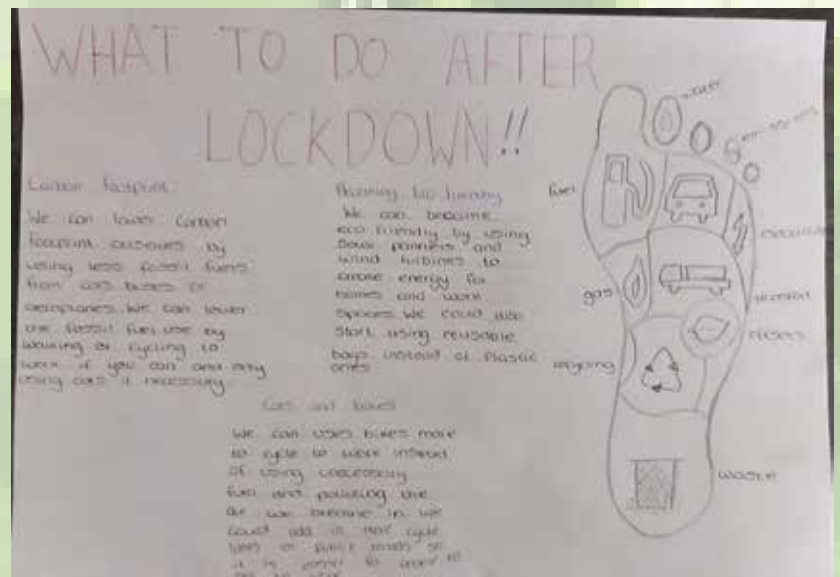 WHAT TO DO AFTER
LOCKDOWN!!
Carbon footprint:
We can lower Carbon
footprint ourselves by
using less fossil fuels
from cars buses or
aeroplanes. We can lower
the fossil fuel use by
walking or cycling to
work if you can and only
using cars if necessary
Becoming Eco friendly
We can become
eco friendly by using
Solar and
wind turbines to
create energy for
homes and work
spaces. We could also
Start using reusable
bags instead of Plastic
ones.
Cars and bikes
We can uses bikes more
to cycle to work instead
of using unnecessary
fuel and polluting the
air we breathe in. We
could add in more cycle
lanes on public roads so
it is easier for people to
water
emissions
fuel
gas
offsets
recycling
waste